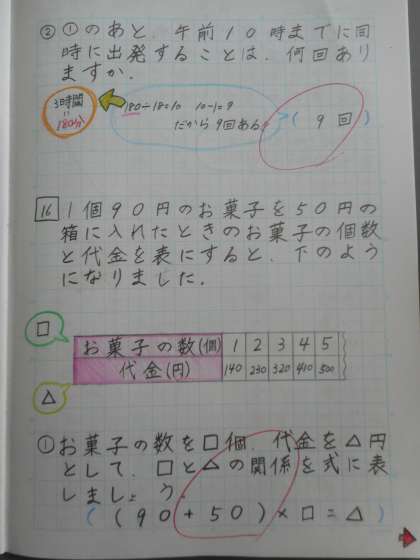 ② ①のあと、午前10時までに同
時に出発することは、何回あり
ますか.
3時間
180分
180÷18=10 10-1=9
だから9回ある
( 9 回 )
16 1個90円のお菓子を50円の
箱に入れたときのお菓子の個数
と代金を表にすると、下のよう
になりました.
□
お菓子の数(個) 1 2 3 4 5
代金(円) 140 230 320 410 500
△
① お菓子の数を□個、代金を△円
として、□と△の関係を式に表
しましょう.
( (90+50)×□=△ )